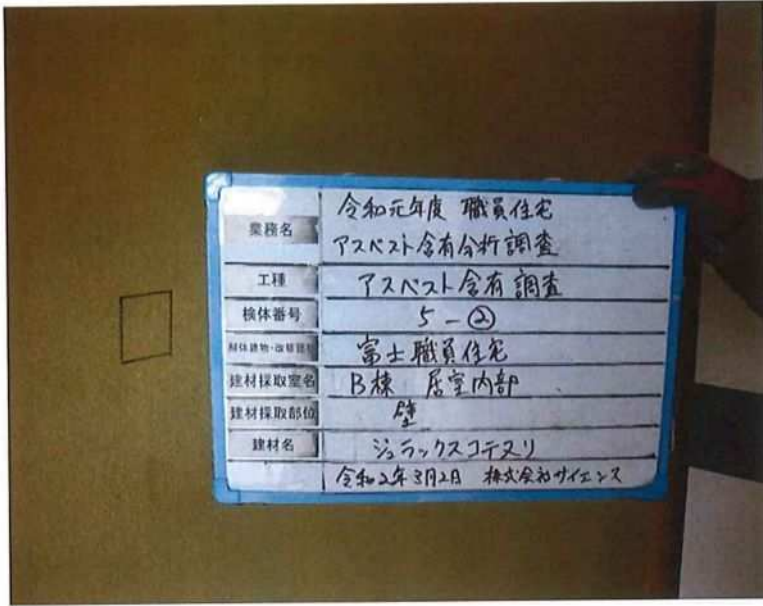 業務名 令和元年度 職員住宅
アスベスト含有分析調査
工種 アスベスト含有調査
検体番号 5-②
解体建物・改修 富士職員住宅
建材採取室名 B棟 居室内部
建材採取部位 壁
建材名 ジュラックスコテヌリ
令和2年3月2日 株式会社サイエンス